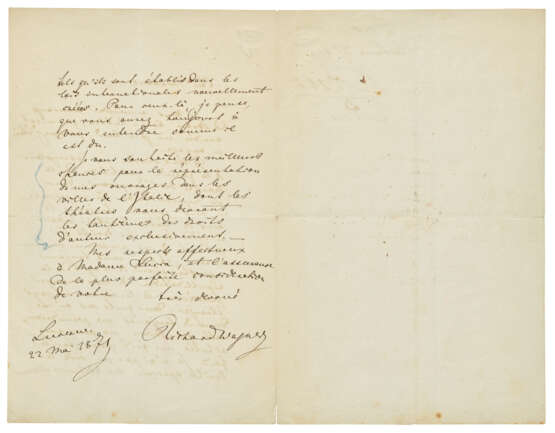 tels qu'ils sont établis dans les
lois internationales nouvellement
créées. Pour ceux-là, je pense,
que vous aurez toujours à
vous entendre comme il
est dû.
Je vous souhaite les meilleures
chances pour la représentation
de mes ouvrages dans les
villes de l'Italie, dont les
théâtres vous devront
les tantièmes des droits
d'auteur exclusivement. —
Mes respects affectueux
à Madame Lucca, et l'assurance
de la plus parfaite considération
de votre très dévoué
Richard Wagner
Lucerne
22 Mai 1871